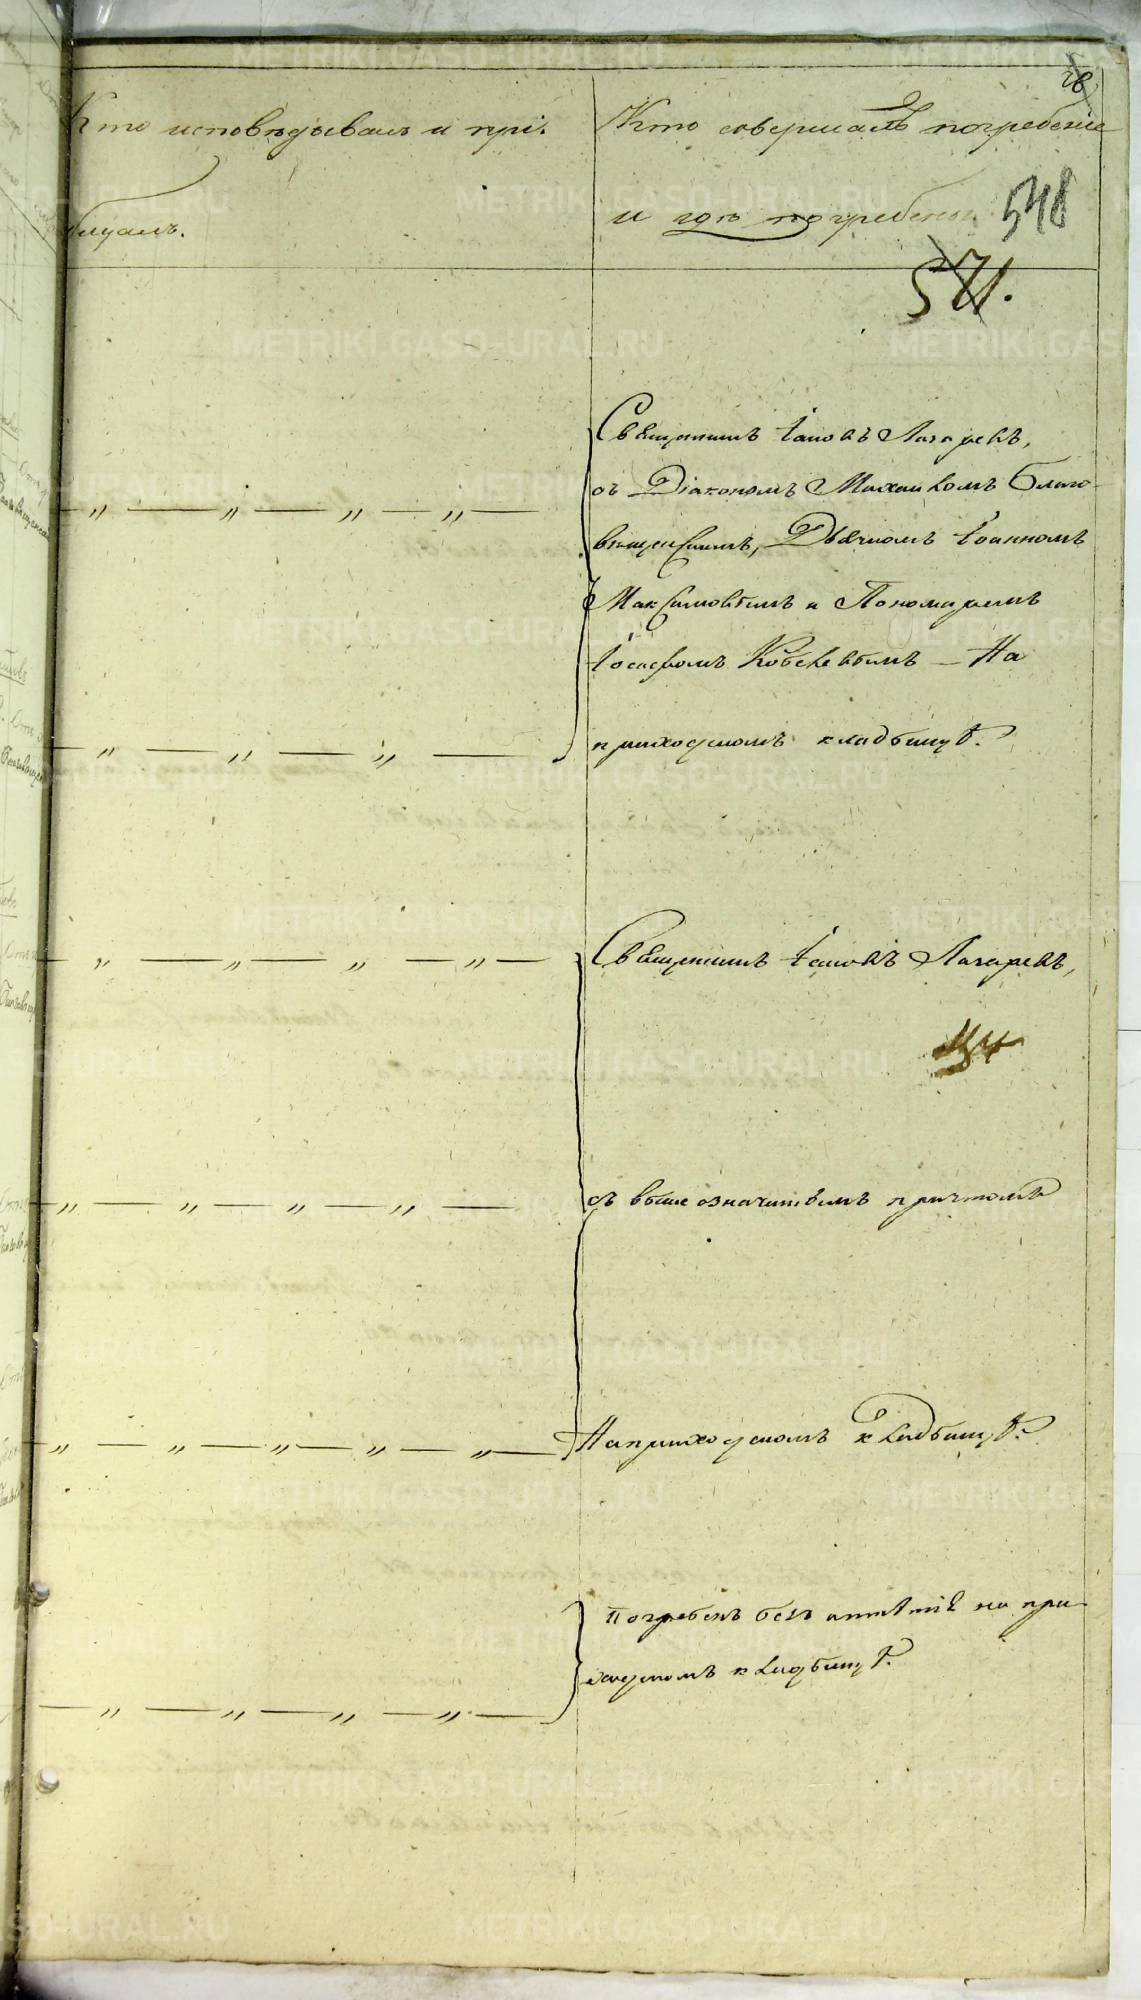 28
Кто исповѣдывалъ и прі-
общалъ.
Кто совершалъ погребеніе
и гдѣ погребены
548
571.
Священникъ Іаковъ Лазаревъ,
съ Діакономъ Михаиломъ Благо-
вѣщенскимъ, Дьячкомъ Іоанномъ
Максимовымъ и Пономаремъ
— „ — „ — „ — „ —
Іосифомъ — На
приходскомъ кладбищѣ.
— „ — „ — „ —
Священникъ Іаковъ Лазаревъ,
— „ — „ — „ — „ —
съ выше означеннымъ причтомъ
— „ — „ — „ — „ —
На приходскомъ кладбищѣ.
— „ — „ — „ — „ — „ —
Погребенъ безъ отпѣтія на при-
ходскомъ кладбищѣ.
— „ — „ — „ — „ —
METRIKI.GASO-URAL.RU